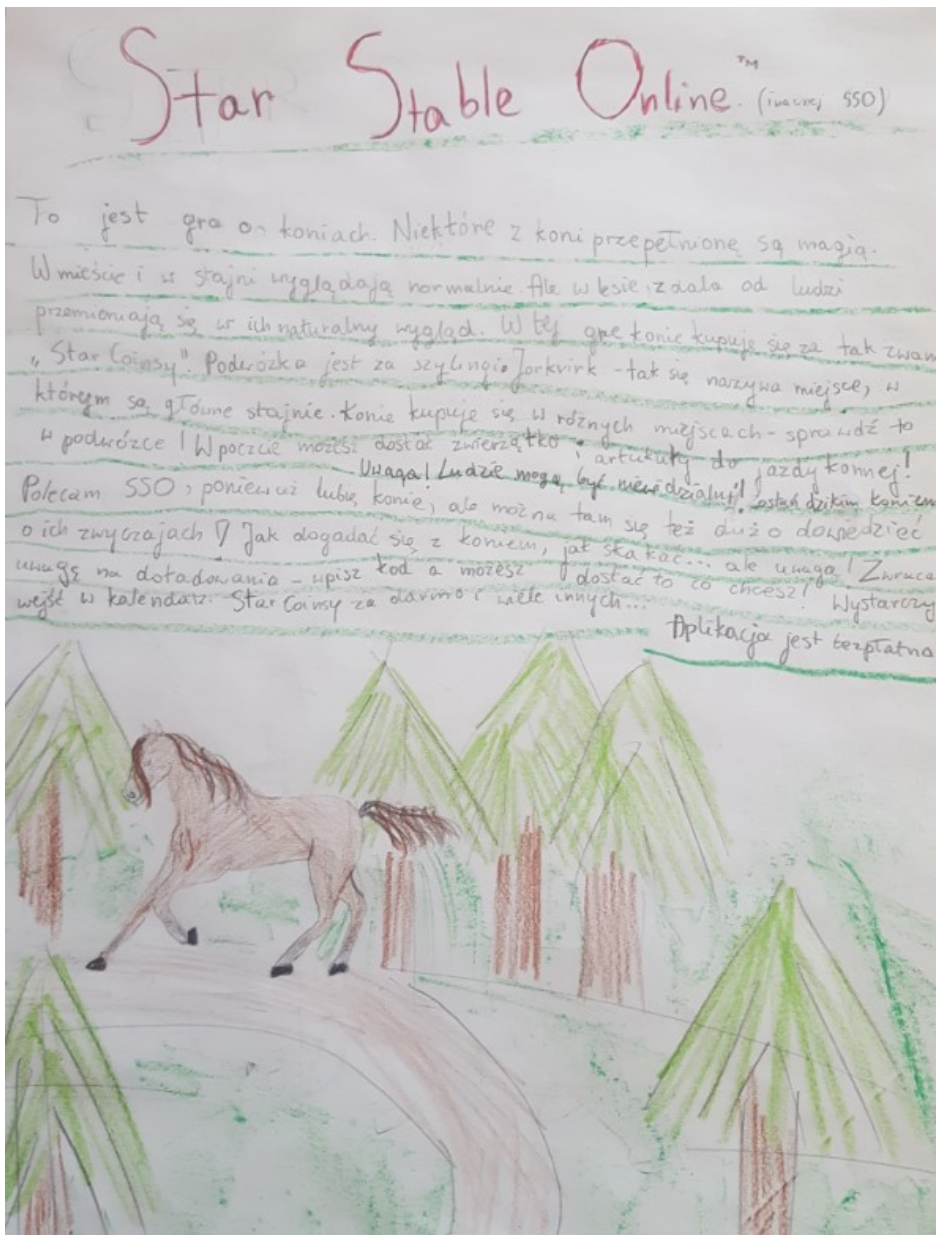 Star Stable Online ™ (inaczej SSO)
To jest gra o koniach. Niektóre z koni przepełnione są magią.
W mieście i w stajni wyglądają normalnie. Ale w lesie, z dala od ludzi
przemioniają się w ich naturalny wygląd. W tej grze konie kupuje się za tak zwan
„Star Coinsy". Podwózka jest za szylingi. Jorkvirk - tak się nazywa miejsce, w
którym są główne stajnie. Konie kupuje się w różnych miejscach - sprawdź to
w podwózce! W poczcie możesz dostać zwierzątko i artukuły do jazdy konnej!
Uwaga! Ludzie mogą być niewidzialni! dzikim koniem
Polecam SSO, ponieważ lubię konie, ale można tam się też dużo dowiedzieć
o ich zwyczajach! Jak dogadać się z koniem, jak skakać... ale uwaga! Zwraca
uwagę na doładowania - wpisz kod a możesz dostać to co chcesz! Wystarczy
wejść w kalendarz. Star Coinsy za darmo i wiele innych...
Aplikacja jest bezpłatna